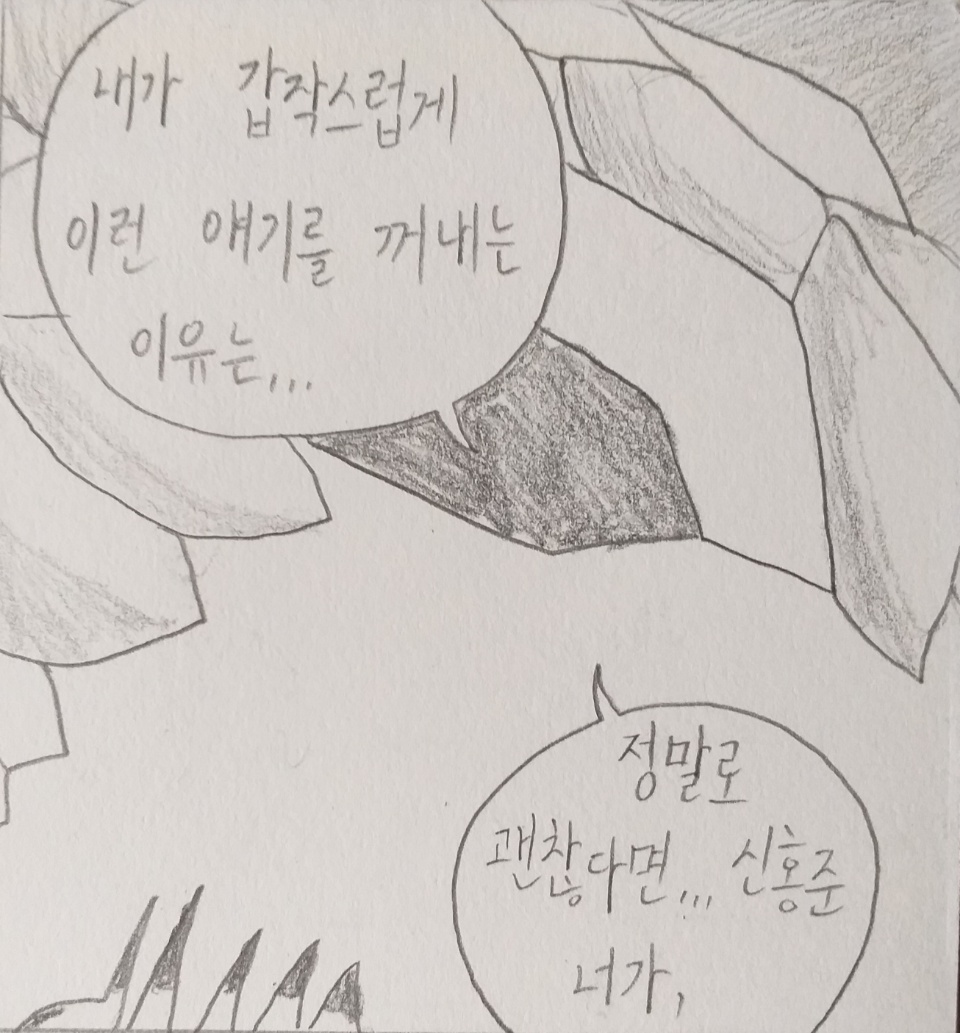 내가 갑작스럽게
이런 얘기를 꺼내는
이유는...
정말로
괜찮다면... 신홍준
너가,